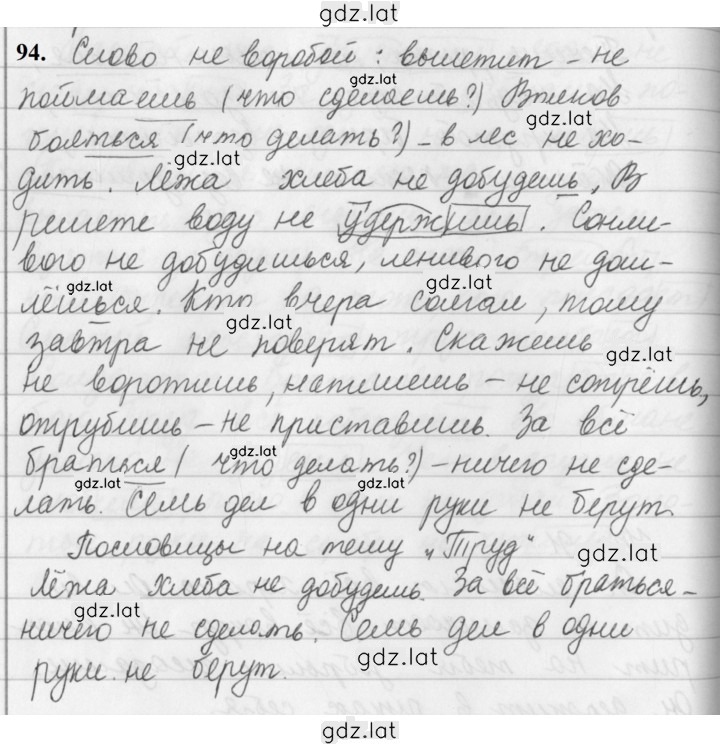 gdz.lat
94. Слово не воробой: вылетит – не
gdz.lat
поймаешь (что сделаешь?) Волков
gdz.lat
бояться (что делать?) – в лес не хо-
gdz.lat
дить. Лёжа хлеба не добудешь. В
gdz.lat
решете воду не удержишь. Сонли-
вого не добудишься, ленивого не дош-
gdz.lat
лёшься. Кто вчера солгал, тому
gdz.lat
завтра не поверят. Скажешь
gdz.lat
не воротишь, напишешь – не сотрёшь,
gdz.lat
отрубишь – не приставишь. За всё
gdz.lat
браться (что делать?) – ничего не сде-
gdz.lat
gdz.lat
лать. Семь дел в одни руки не берут.
Пословицы на тему „Труд“
gdz.lat
Лёжа хлеба не добудешь. За всё браться –
gdz.lat
ничего не сделать. Семь дел в одни
gdz.lat
руки не берут.
gdz.lat